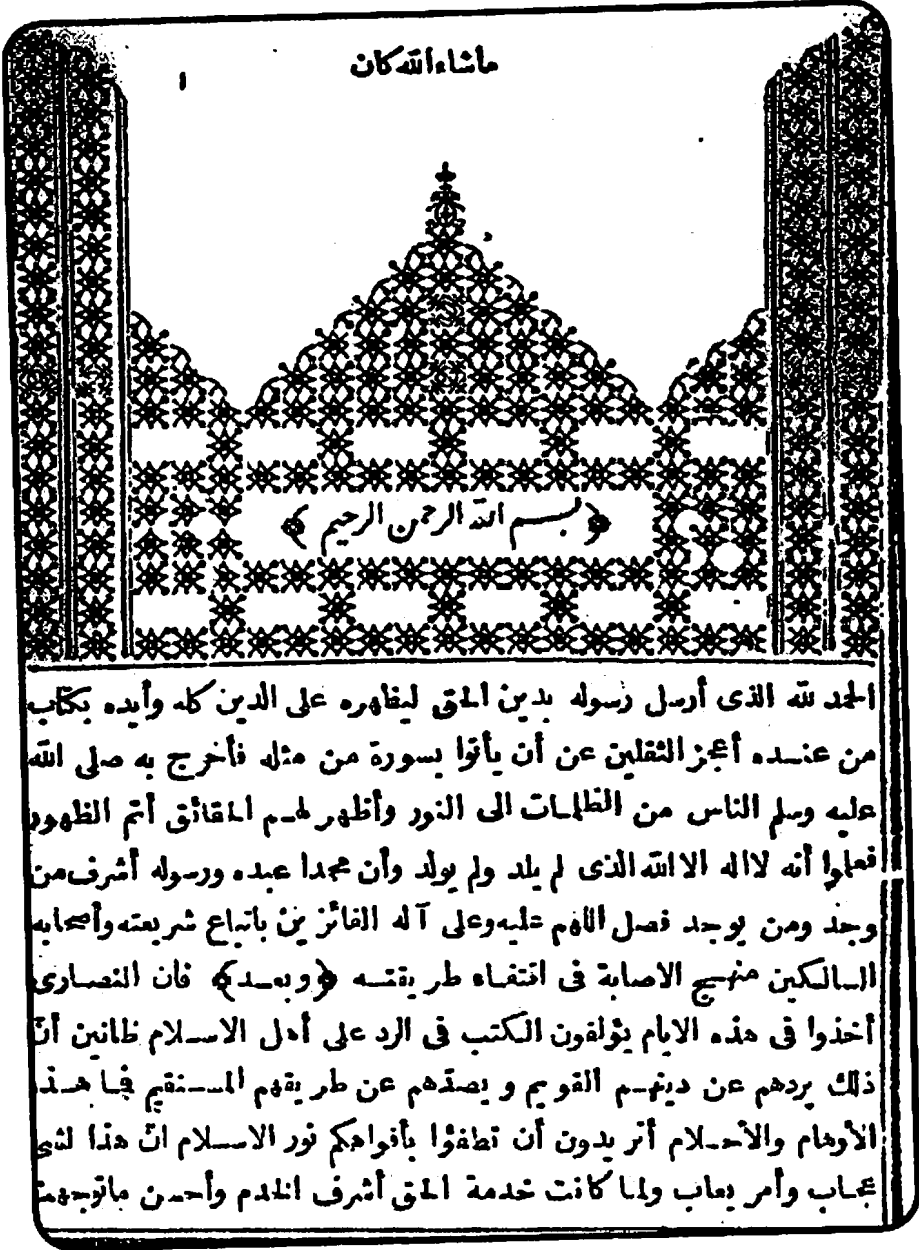 ماشاءالله كان
١
﴿بسم الله الرحمن الرحيم﴾
الحمد لله الذى أرسل رسوله بدين الحق ليظهره على الدين كله وأيده بكتاب
من عنده أعجز الثقلين عن أن يأتوا بسورة من مثله فأخرج به صلى الله
عليه وسلم الناس من الظلمات الى النور وأظهر لهم الحقائق أتم الظهور
فعلموا أنه لااله الا الله الذى لم يلد ولم يولد وأن محمدا عبده ورسوله أشرف من
وجد ومن يوجد فصل اللهم عليه وعلى آله الفائزين باتباع شريعته وأصحابه
السالكين منهج الاصابة فى اقتفاء طريقته ﴿وبعد﴾ فان النصارى
أخذوا فى هذه الايام يؤلفون الكتب فى الرد على أهل الاسلام ظانين أنّ
ذلك يردهم عن دينهم القويم ويصدّهم عن طريقهم المستقيم فما هذه
الأوهام والأحلام أتريدون أن تطفؤا بأفواهكم نور الاسلام انّ هذا لشئ
عجاب وأمر يعاب ولما كانت خدمة الحق أشرف الخدم وأحسن ماتوجهت